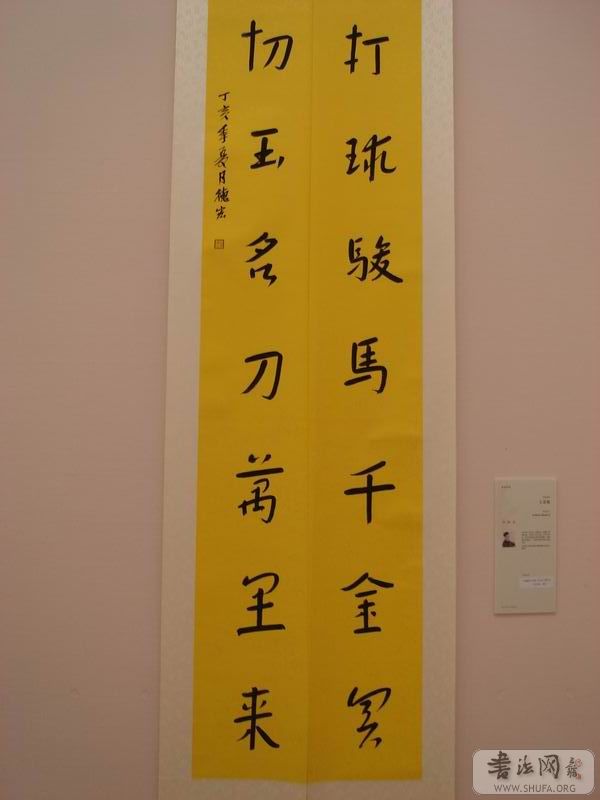 打球駿馬千金買
切玉名刀萬里来
丁亥季夏月德宏
書法网
WWW.SHUFA.ORG